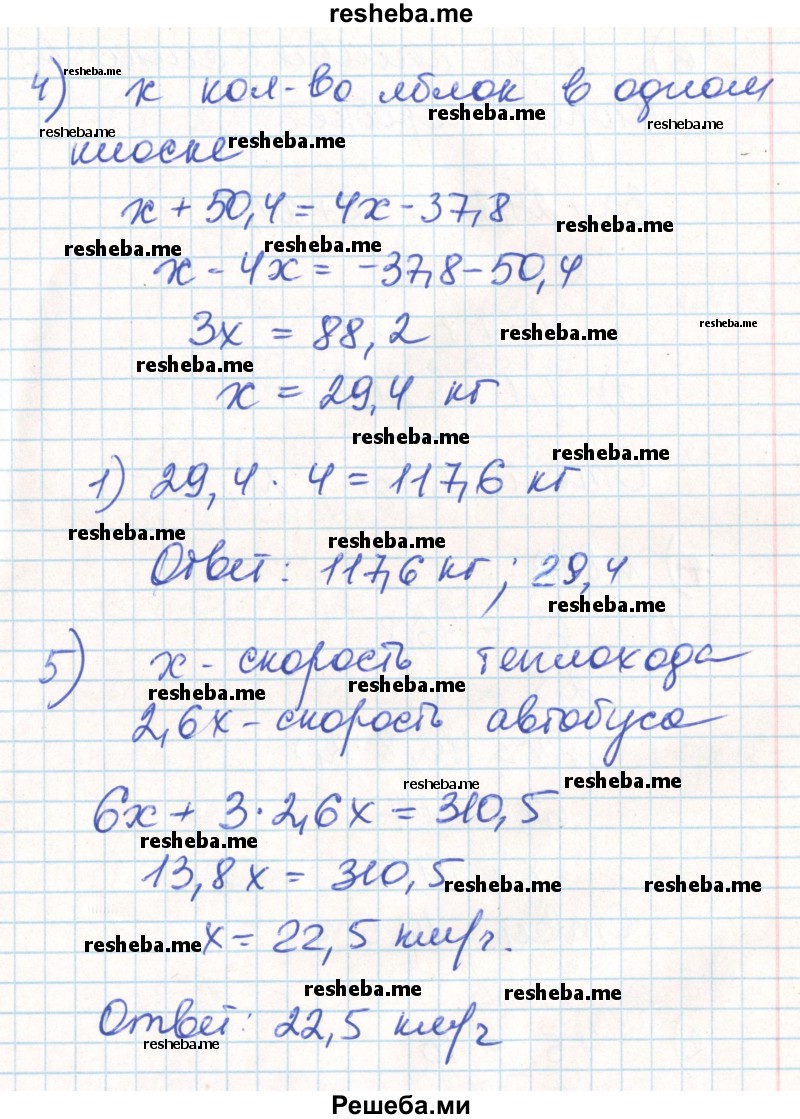 resheba.me
4) x кол-во яблок в одном
resheba.me
resheba.me
resheba.me
resheba.me
киоске
resheba.me
x + 50,4 = 4x - 37,8
resheba.me
resheba.me
resheba.me
x - 4x = -37,8 - 50,4
3x = 88,2
resheba.me
resheba.me
resheba.me
x = 29,4 кг
resheba.me
resheba.me
1) 29,4 · 4 = 117,6 кг
resheba.me
resheba.me
Ответ: 117,6 кг; 29,4
resheba.me
5) x - скорость теплохода
resheba.me
resheba.me
2,6x - скорость автобуса
resheba.me
resheba.me
6x + 3 · 2,6x = 310,5
resheba.me
13,8x = 310,5
resheba.me
resheba.me
resheba.me
x = 22,5 км/ч.
resheba.me
resheba.me
Ответ: 22,5 км/ч
resheba.me
Решеба.ми